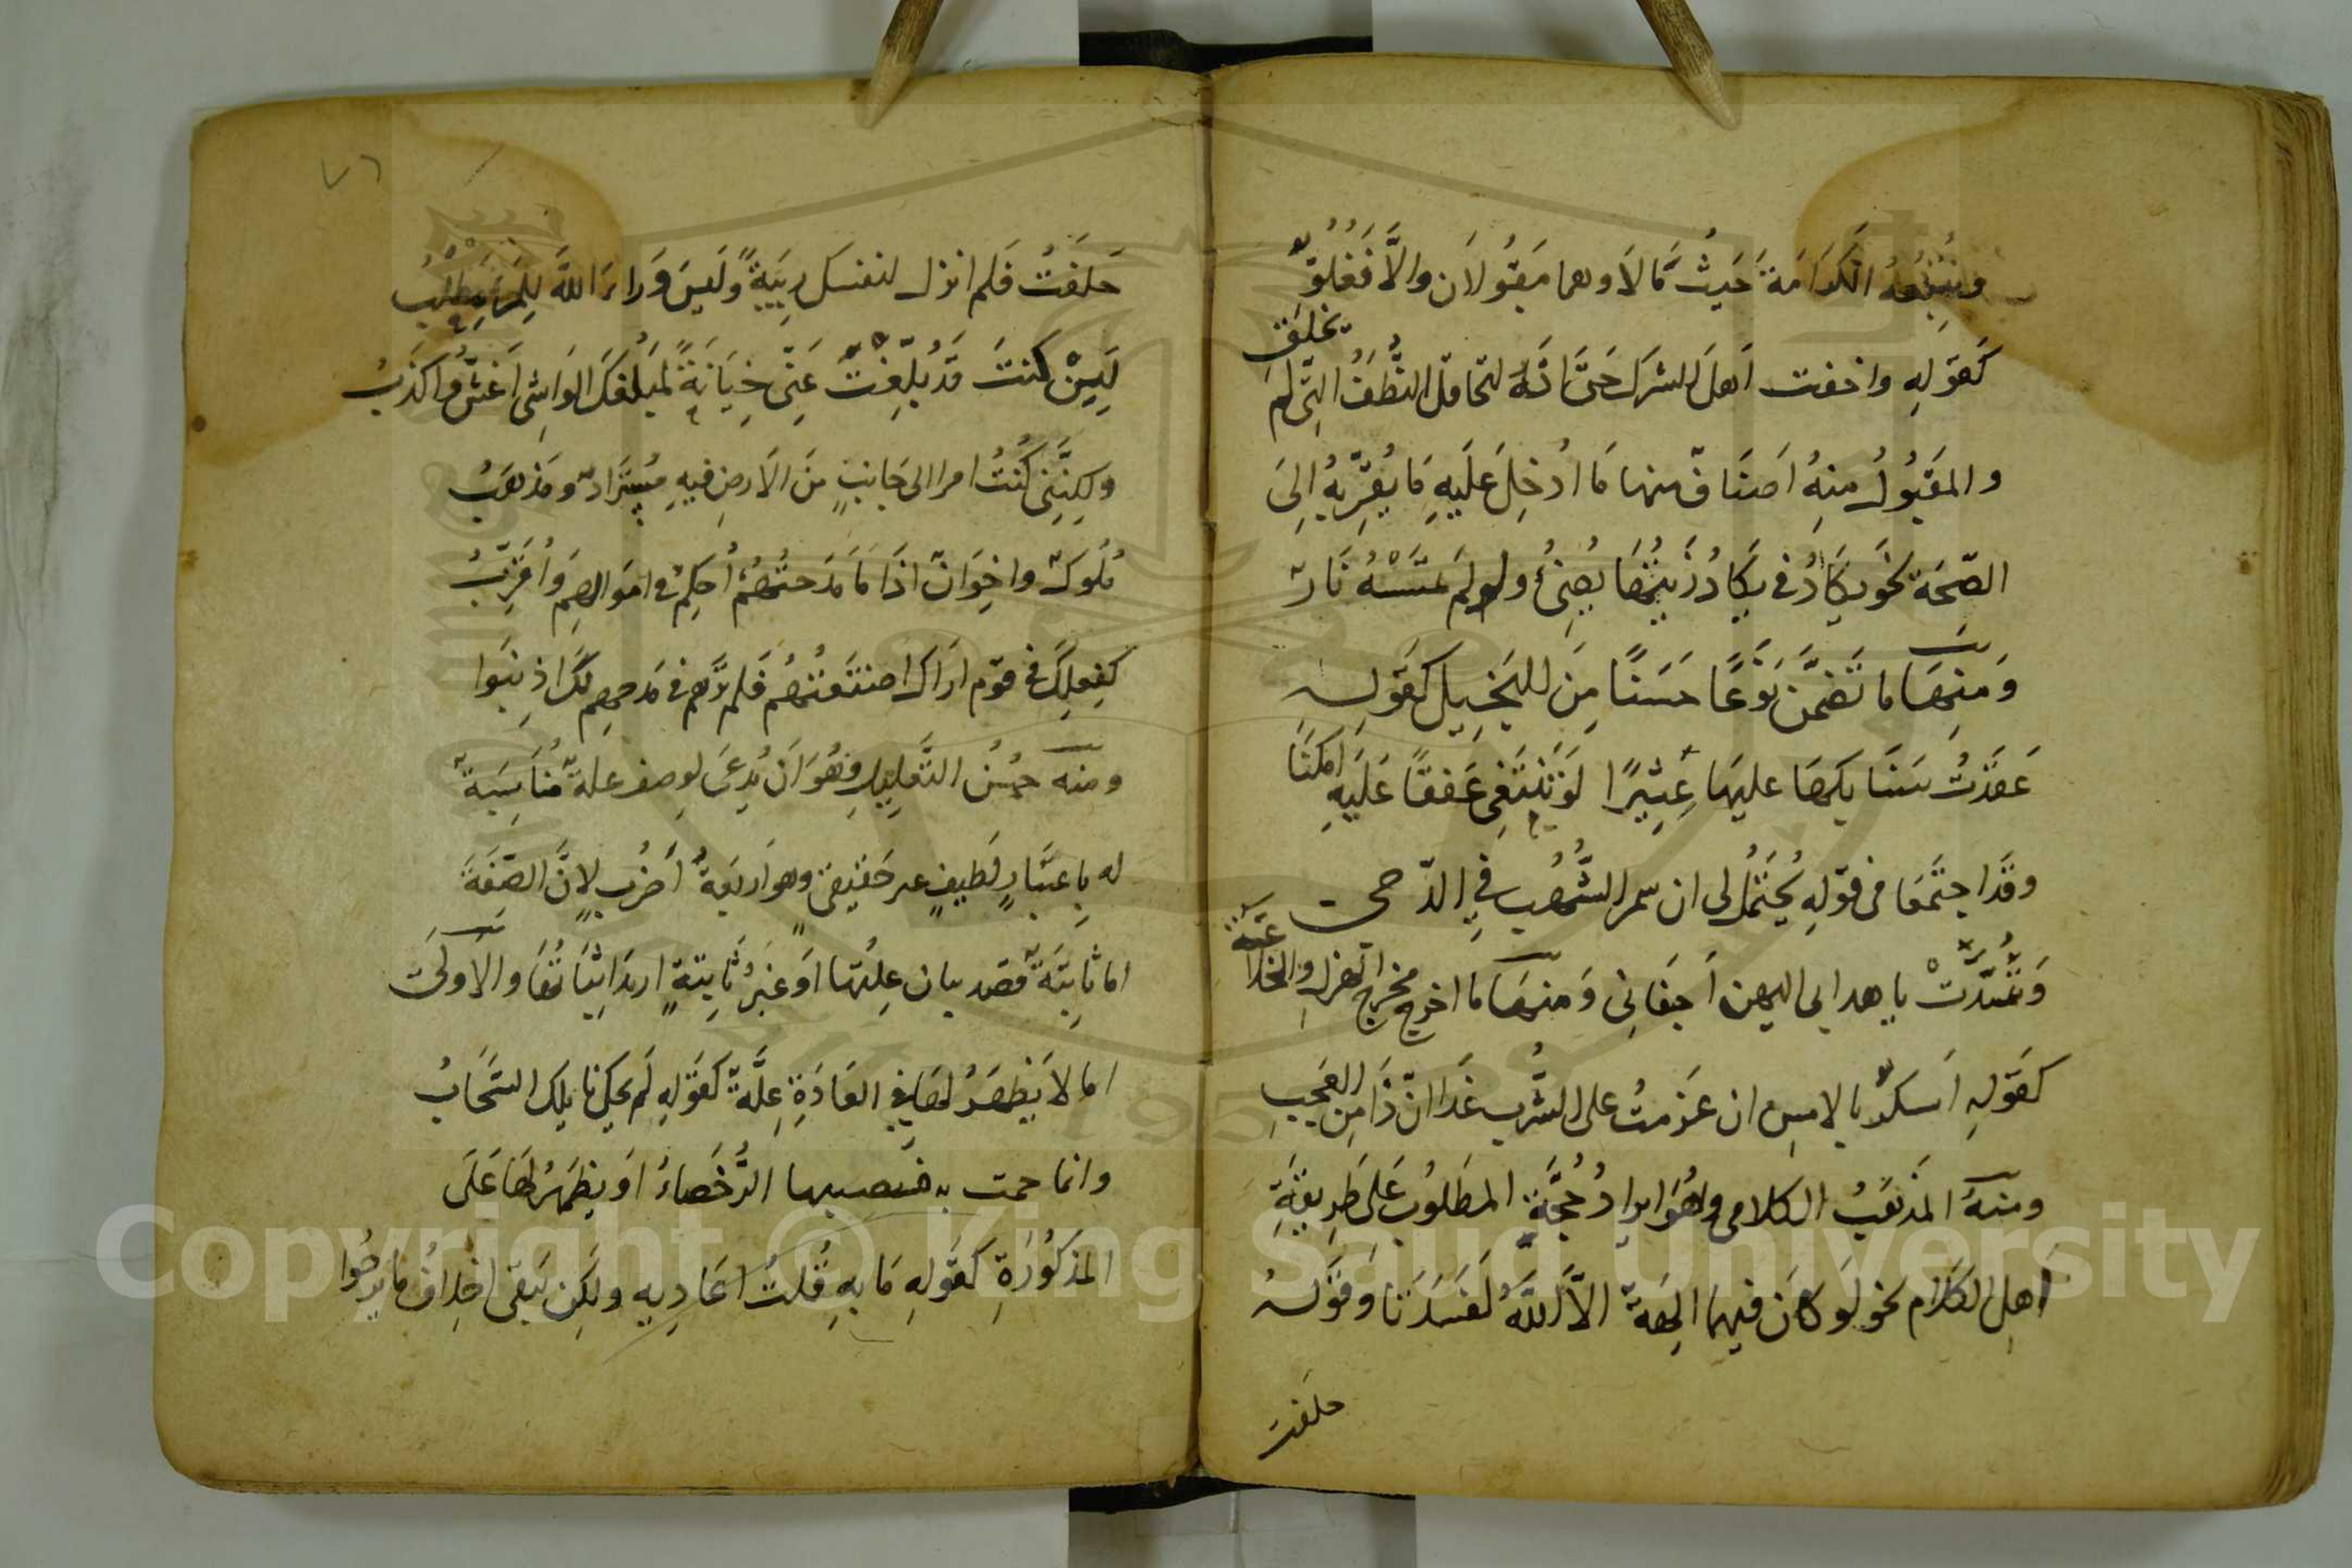 ونتبعه الكرامة حيث مالا وهما مقبولان والا فغلوّ
كقوله واخفت اهل الشرك حتى انه لتخافك النطف التي لم تخلق
والمقبول منه اصناف منها ما ادخل عليه ما يقربه الى
الصحة نحو يكاد في يكاد زيتها يضئ ولو لم تمسسه نار
ومنها ما تضمن نوعًا حسنًا من التخييل كقوله
عقدت سنابكها عليها عثيرًا لو تبتغي عنقًا عليه امكنا
وقد اجتمعا في قوله يخيل لي ان سمر الشهب في الدجى
وشدت باهدابي اليهن اجفاني ومنها ما اخرج مخرج الهزل والخلاعة
كقوله اسكر بالامس ان عزمت على الشرب غدا ان ذا من العجب
ومنه المذهب الكلامي وهو ايراد حجة المطلوب على طريقة
اهل الكلام نحو لو كان فيهما الهة الا الله لفسدتا وقوله
حلفت
٧٦
حلفت فلم اترك لنفسك ريبة وليس وراء الله للمرء مطلب
لئن كنت قد بلغت عني خيانة لمبلغك الواشي اغش واكذب
ولكنني كنت امرا لي جانب من الارض فيه مستراد ومذهب
ملوك واخوان اذا ما مدحتهم احكم في اموالهم واقرب
كفعلك في قوم اراك اصطنعتهم فلم ترهم في مدحهم لك اذنبوا
ومنه حسن التعليل وهو ان يدعى لوصف علة مناسبة
له باعتبار لطيف غير حقيقي وهو اربعة اضرب لان الصفة
اما ثابتة قصد بيان علتها او غير ثابتة اريد اثباتها والاولى
اما لا يظهر لها في العادة علة كقوله لم يحك نايلك السحاب
وانما حمت به فصبيبها الرحضاء او يظهر لها على
المذكورة كقوله ما به قتل اعاديه ولكن يتقى اخلاف ما يرجوا